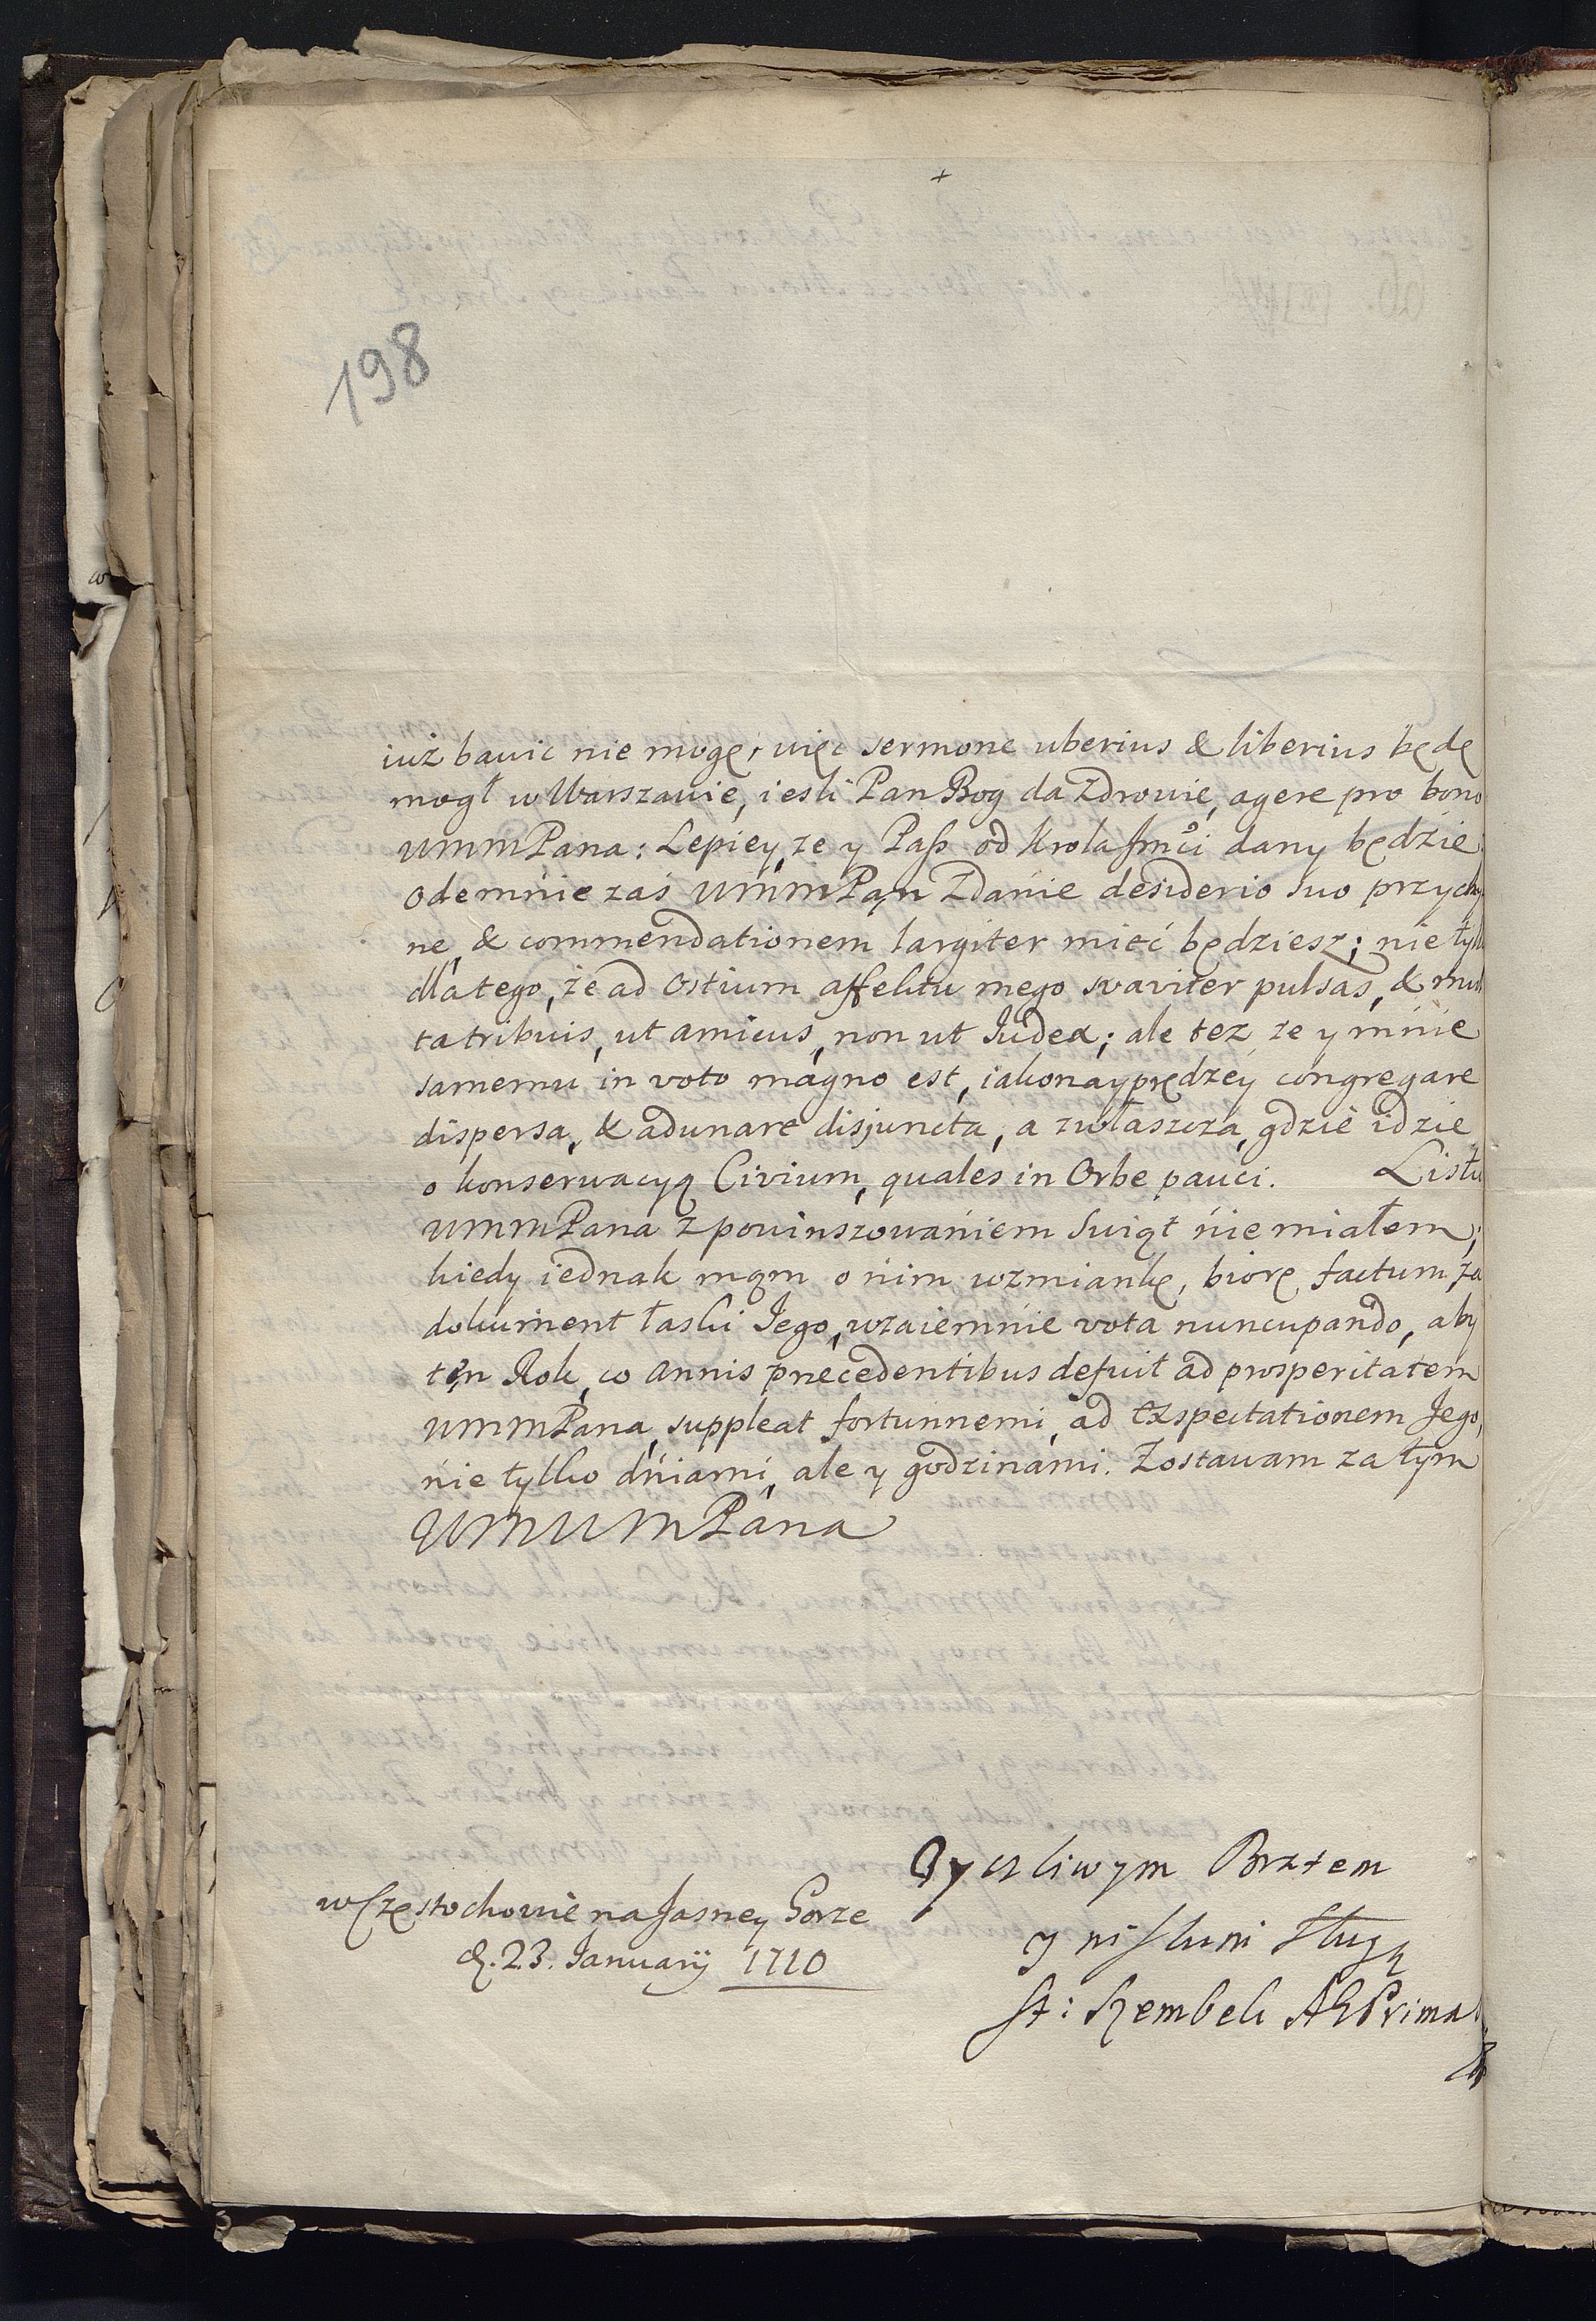 +
198
iuż bawic nie mogę, więc sermone uberius & liberius będę
mogł w Warszawie, iesli Pan Bog da Zdrowie, agere pro bono
UMMPana: Lepiey, ze y Paß od Krola Jmći dany będzie
odemnie zaś UMMPan Zdanie desiderio suo przychy
ne, & commendationem largiter mieć będziesz; nie tylk
dla tego, że ad Ostium affektu mego svaviter pulsas, & mul
ta tribuis, ut amicus, non ut Judex; ale tez ze y mnie
samemu in voto magno est, iakonayprędzey congregare
dispersa, & adunare disjuncta, a zwłaszcza, gdzie idzie
o konserwacyą Civium, quales in Orbe pauci. Listu
UMMPana z powinszowaniem Swiąt nie miałem;
kiedy iednak mąm o nim wzmiankę, biorę factum za
dokument łaski Jego, wzaiemnie vota nuncupando, aby
ten Rok, co annis præcedentibus defuit ad prosperitatem
UMMPana, suppleat fortunnemi, ad exspectationem Jego,
nie tylko dniami, ale y godzinami. Zostawam za tym
UMMMPana
Zyczliwym Bratem
w Częstochowie na Jasney Gorze
y niskim Sługą
d. 23. January 1710
St: Szembek AGPrimas